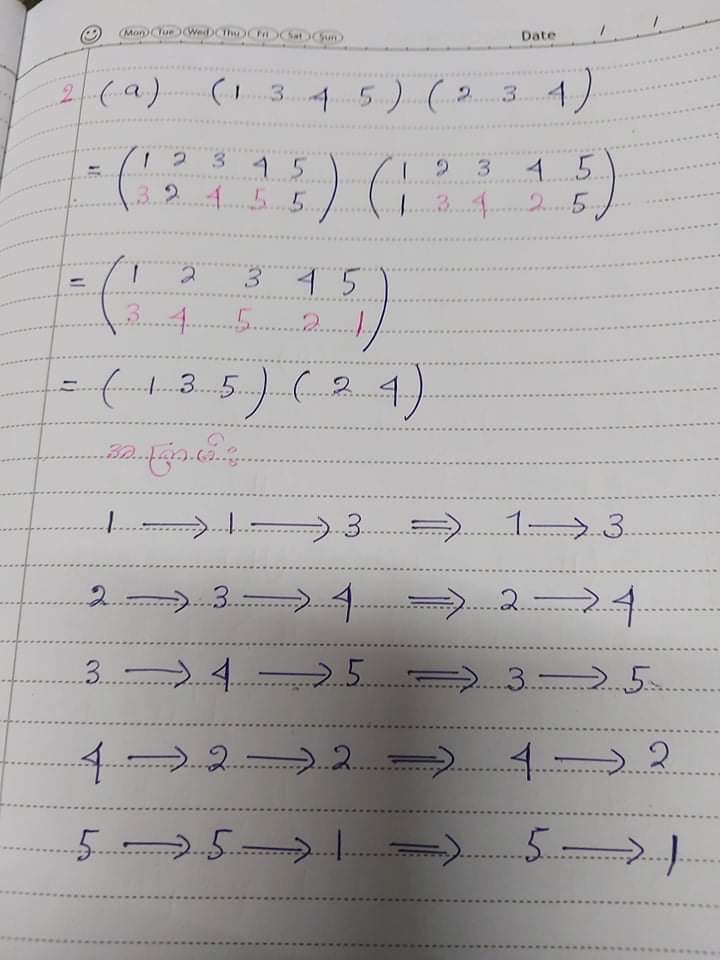 Mon Tue Wed Thu Fri Sat Sun Date / /
2 (a) (1 3 4 5) (2 3 4)
= (1 2 3 4 5) (1 2 3 4 5)
(3 2 4 5 5) (1 3 4 2 5)
= (1 2 3 4 5)
(3 4 5 2 1)
= (1 3 5) (2 4)
1 → 1 → 3 ⇒ 1 → 3
2 → 3 → 4 ⇒ 2 → 4
3 → 4 → 5 ⇒ 3 → 5
4 → 2 → 2 ⇒ 4 → 2
5 → 5 → 1 ⇒ 5 → 1